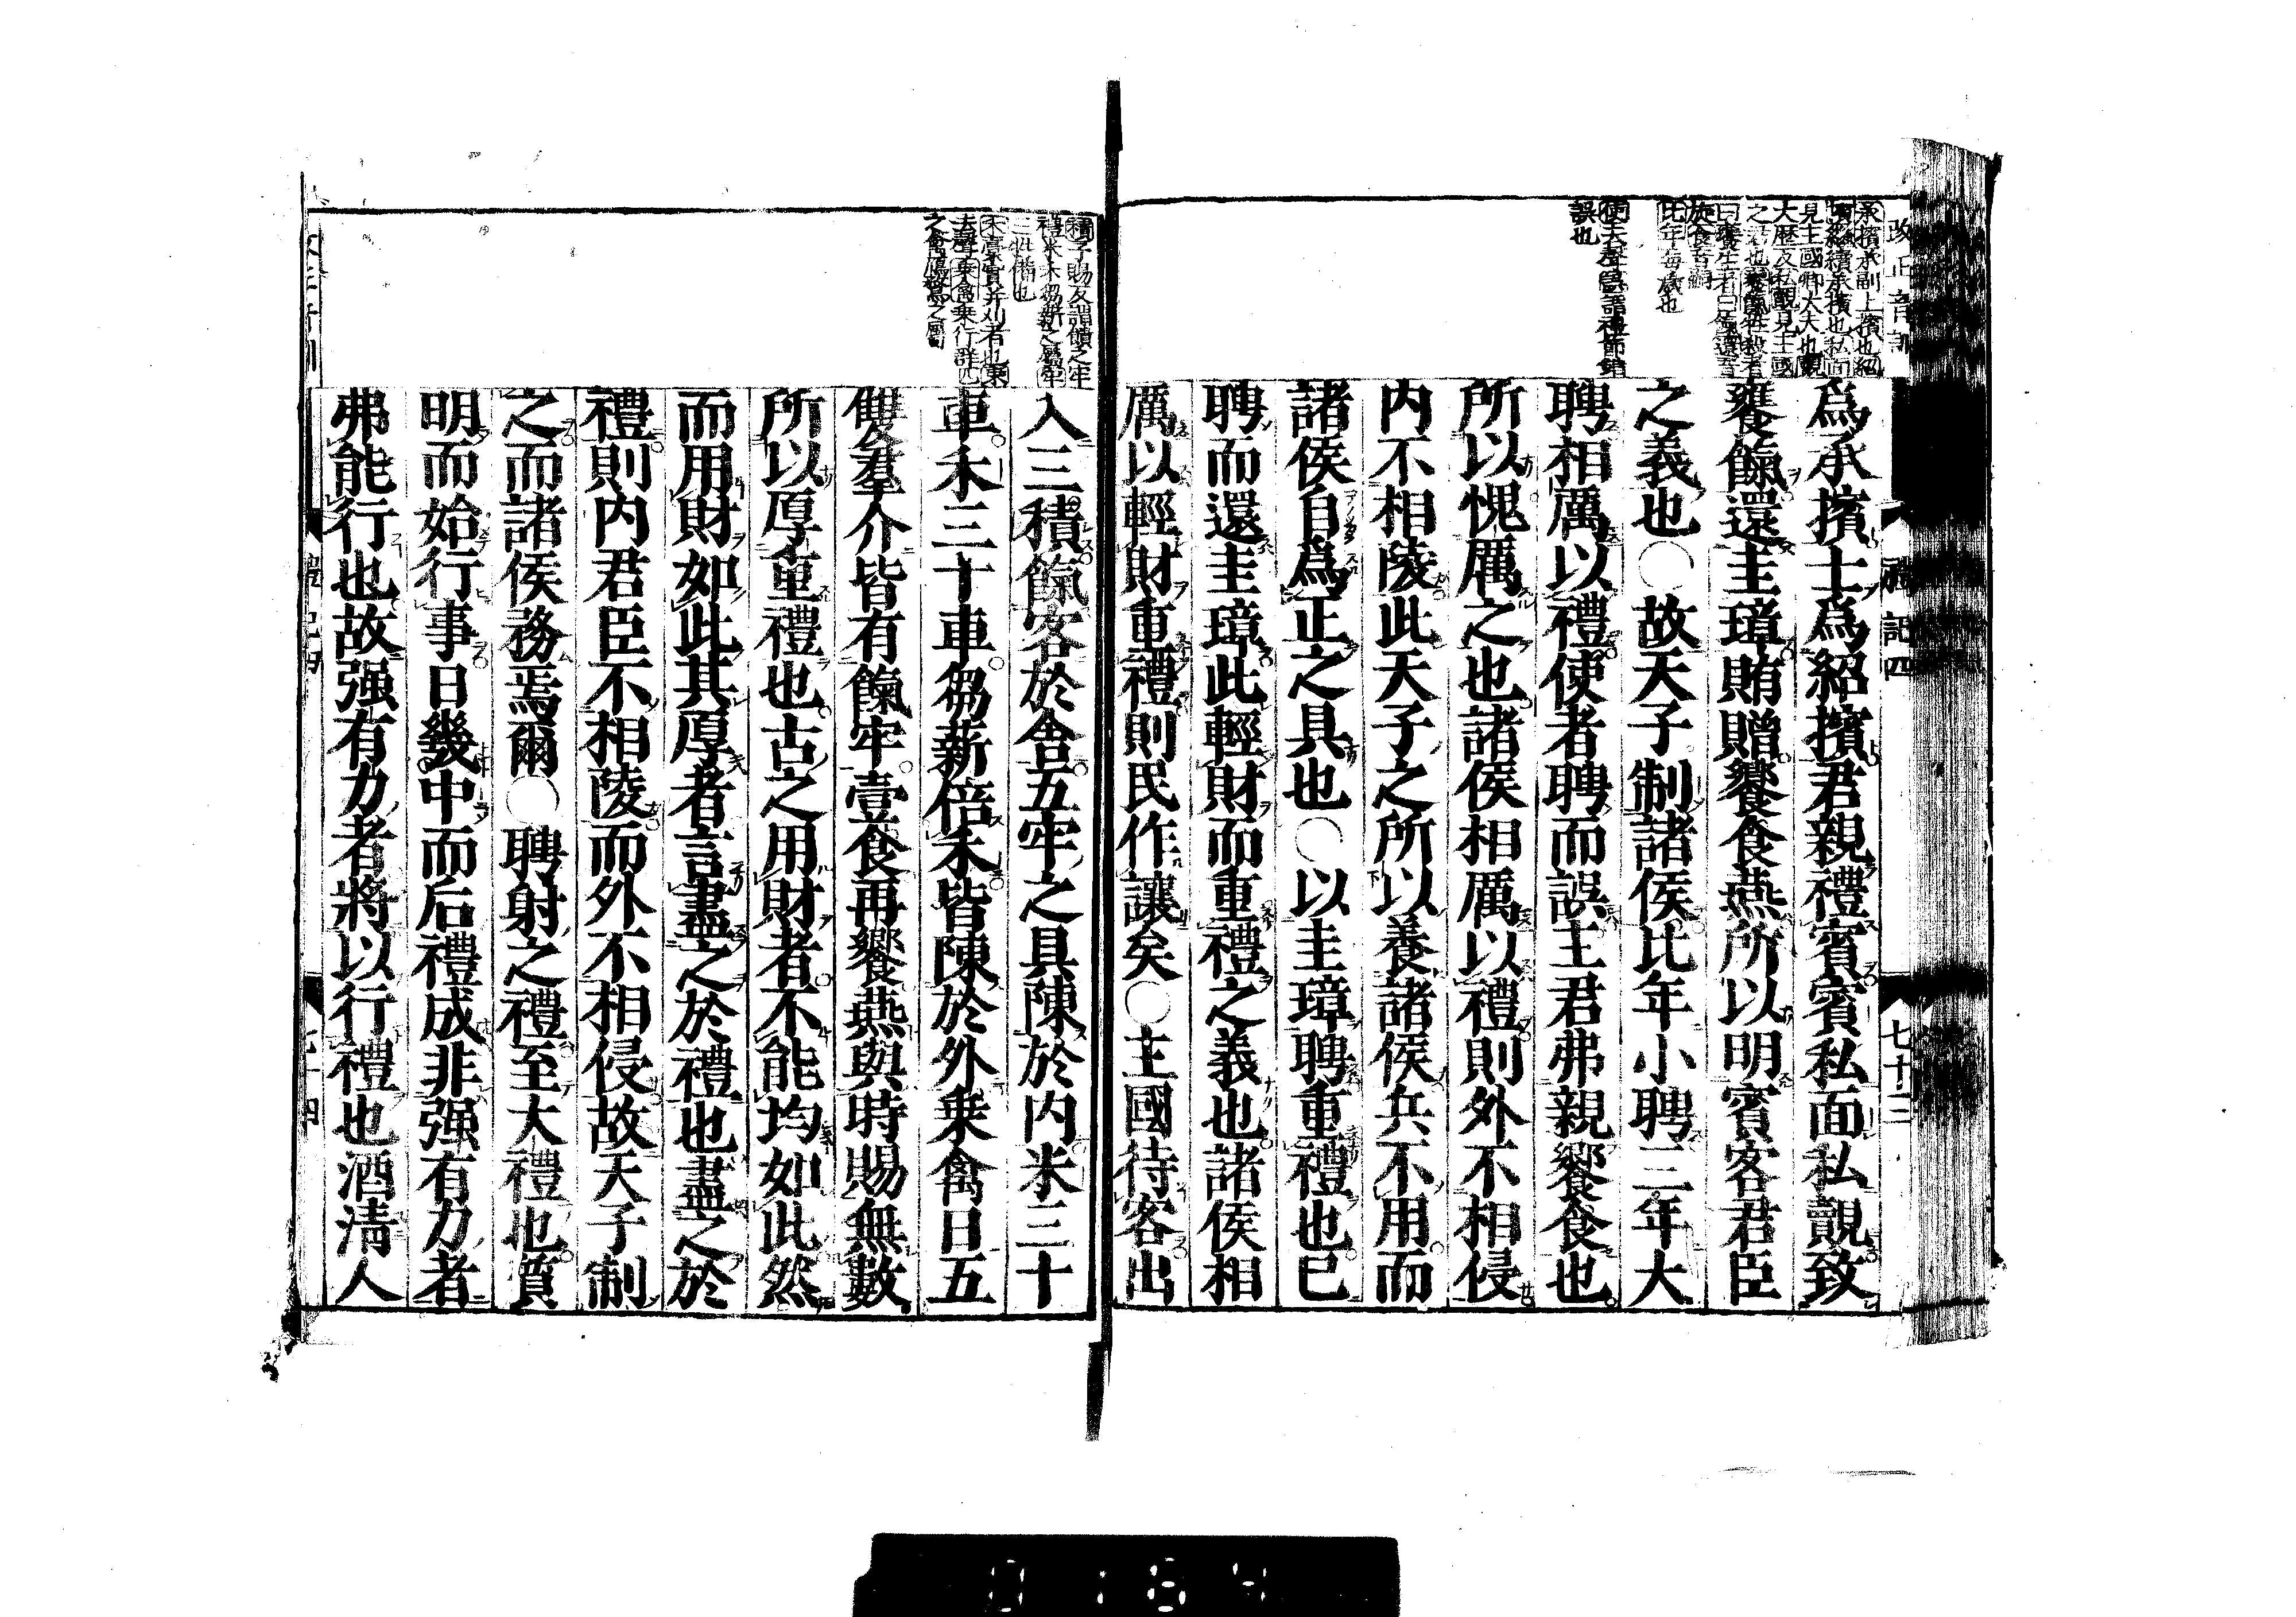 改正音訓
禮記四
七十三
爲承擯士爲紹擯君親禮賓賓私面私覿致
饔餼還圭璋賄贈饗食燕所以明賓客君臣
之義也○故天子制諸侯比年小聘三年大
聘相厲以禮使者聘而誤主君弗親饗食也
所以愧厲之也諸侯相厲以禮則外不相侵
内不相陵此天子之所以養諸侯兵不用而
諸侯自爲正之具也○以圭璋聘重禮也已
聘而還圭璋此輕財而重禮之義也諸侯相
厲以輕財重禮則民作讓矣○主國待客出
入三積餼客於舍五牢之具陳於内米三十
車禾三十車芻薪倍禾皆陳於外乗禽日五
雙羣介皆有餼牢壹食再饗燕與時賜無數
所以厚重禮也古之用財者不能均如此然
而用財如此其厚者言盡之於禮也盡之於
禮則内君臣不相陵而外不相侵故天子制
之而諸侯務焉爾○聘射之禮至大禮也質
明而始行事日幾中而后禮成非强有力者
弗能行也故强有力者將以行禮也酒清人